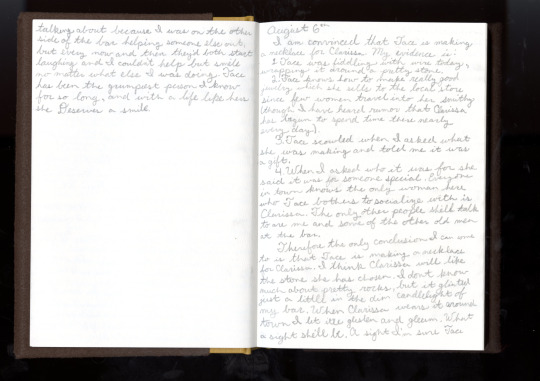 talking about because I was on the other
side of the bar helping someone else out,
but every now and then they'd both start
laughing and I couldn't help but smile
no matter what else I was doing. Jace
has been the grumpiest person I know
for so long, and with a life like hers
she Deserves a smile.
August 6th
I am convinced that Jace is making
a necklace for Clarissa. My evidence is:
1. Jace was fiddling with wire today,
wrapping it around a pretty stone.
2. Jace knows how to make really good
jewelry which she sells to the local store
since few women travel into her smithy
(though I have heard rumor that Clarissa
has begun to spend time there nearly
every day).
3. Jace scowled when I asked what
she was making and told me it was
a gift.
4. When I asked who it was for she
said it was for someone special. Everyone
in town knows the only woman here
who Jace bothers to socialize with is
Clarissa. The only other people she'll talk
to are me and some of the other old men
at the bar.
Therefore the only conclusion I can come
to is that Jace is making a necklace
for Clarissa. I think Clarissa will like
the stone she has chosen. I don't know
much about pretty rocks, but it glinted
just a little in the dim candlelight of
my bar. When Clarissa wears it around
town I bet it'll glisten and gleam. What
a sight she'll be. A sight I'm sure Jace